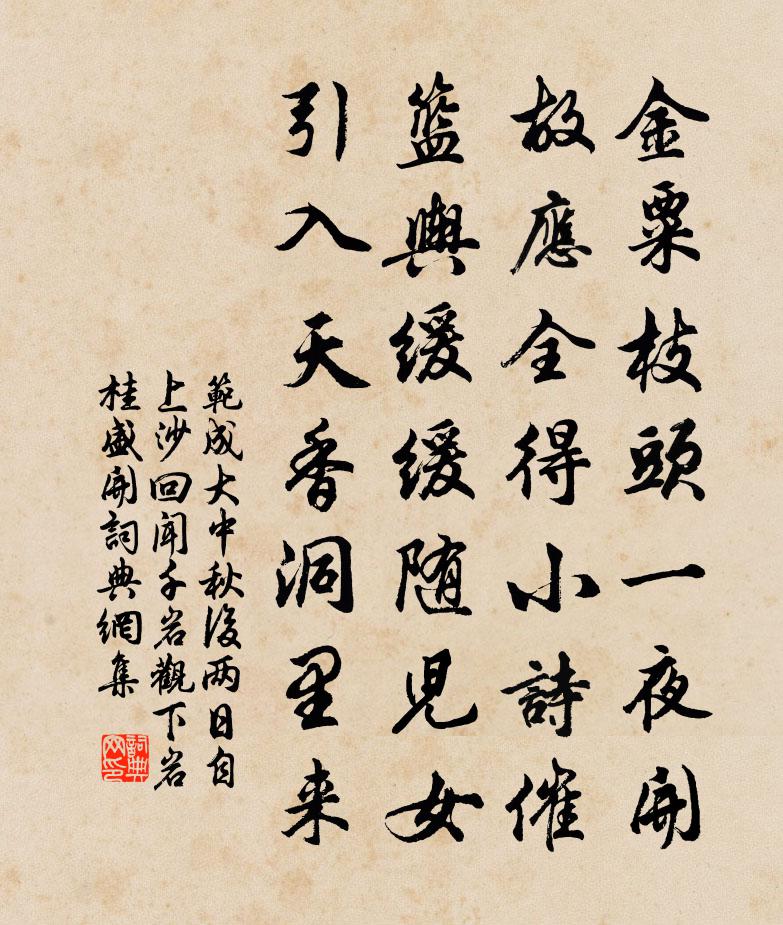 金粟枝頭一夜開
故應全得小詩催
籃輿緩緩随兒女
引入天香洞里来
範成大中秋後兩日自
上沙回聞千岩觀下岩
桂盛開詞典網集
詞典网印